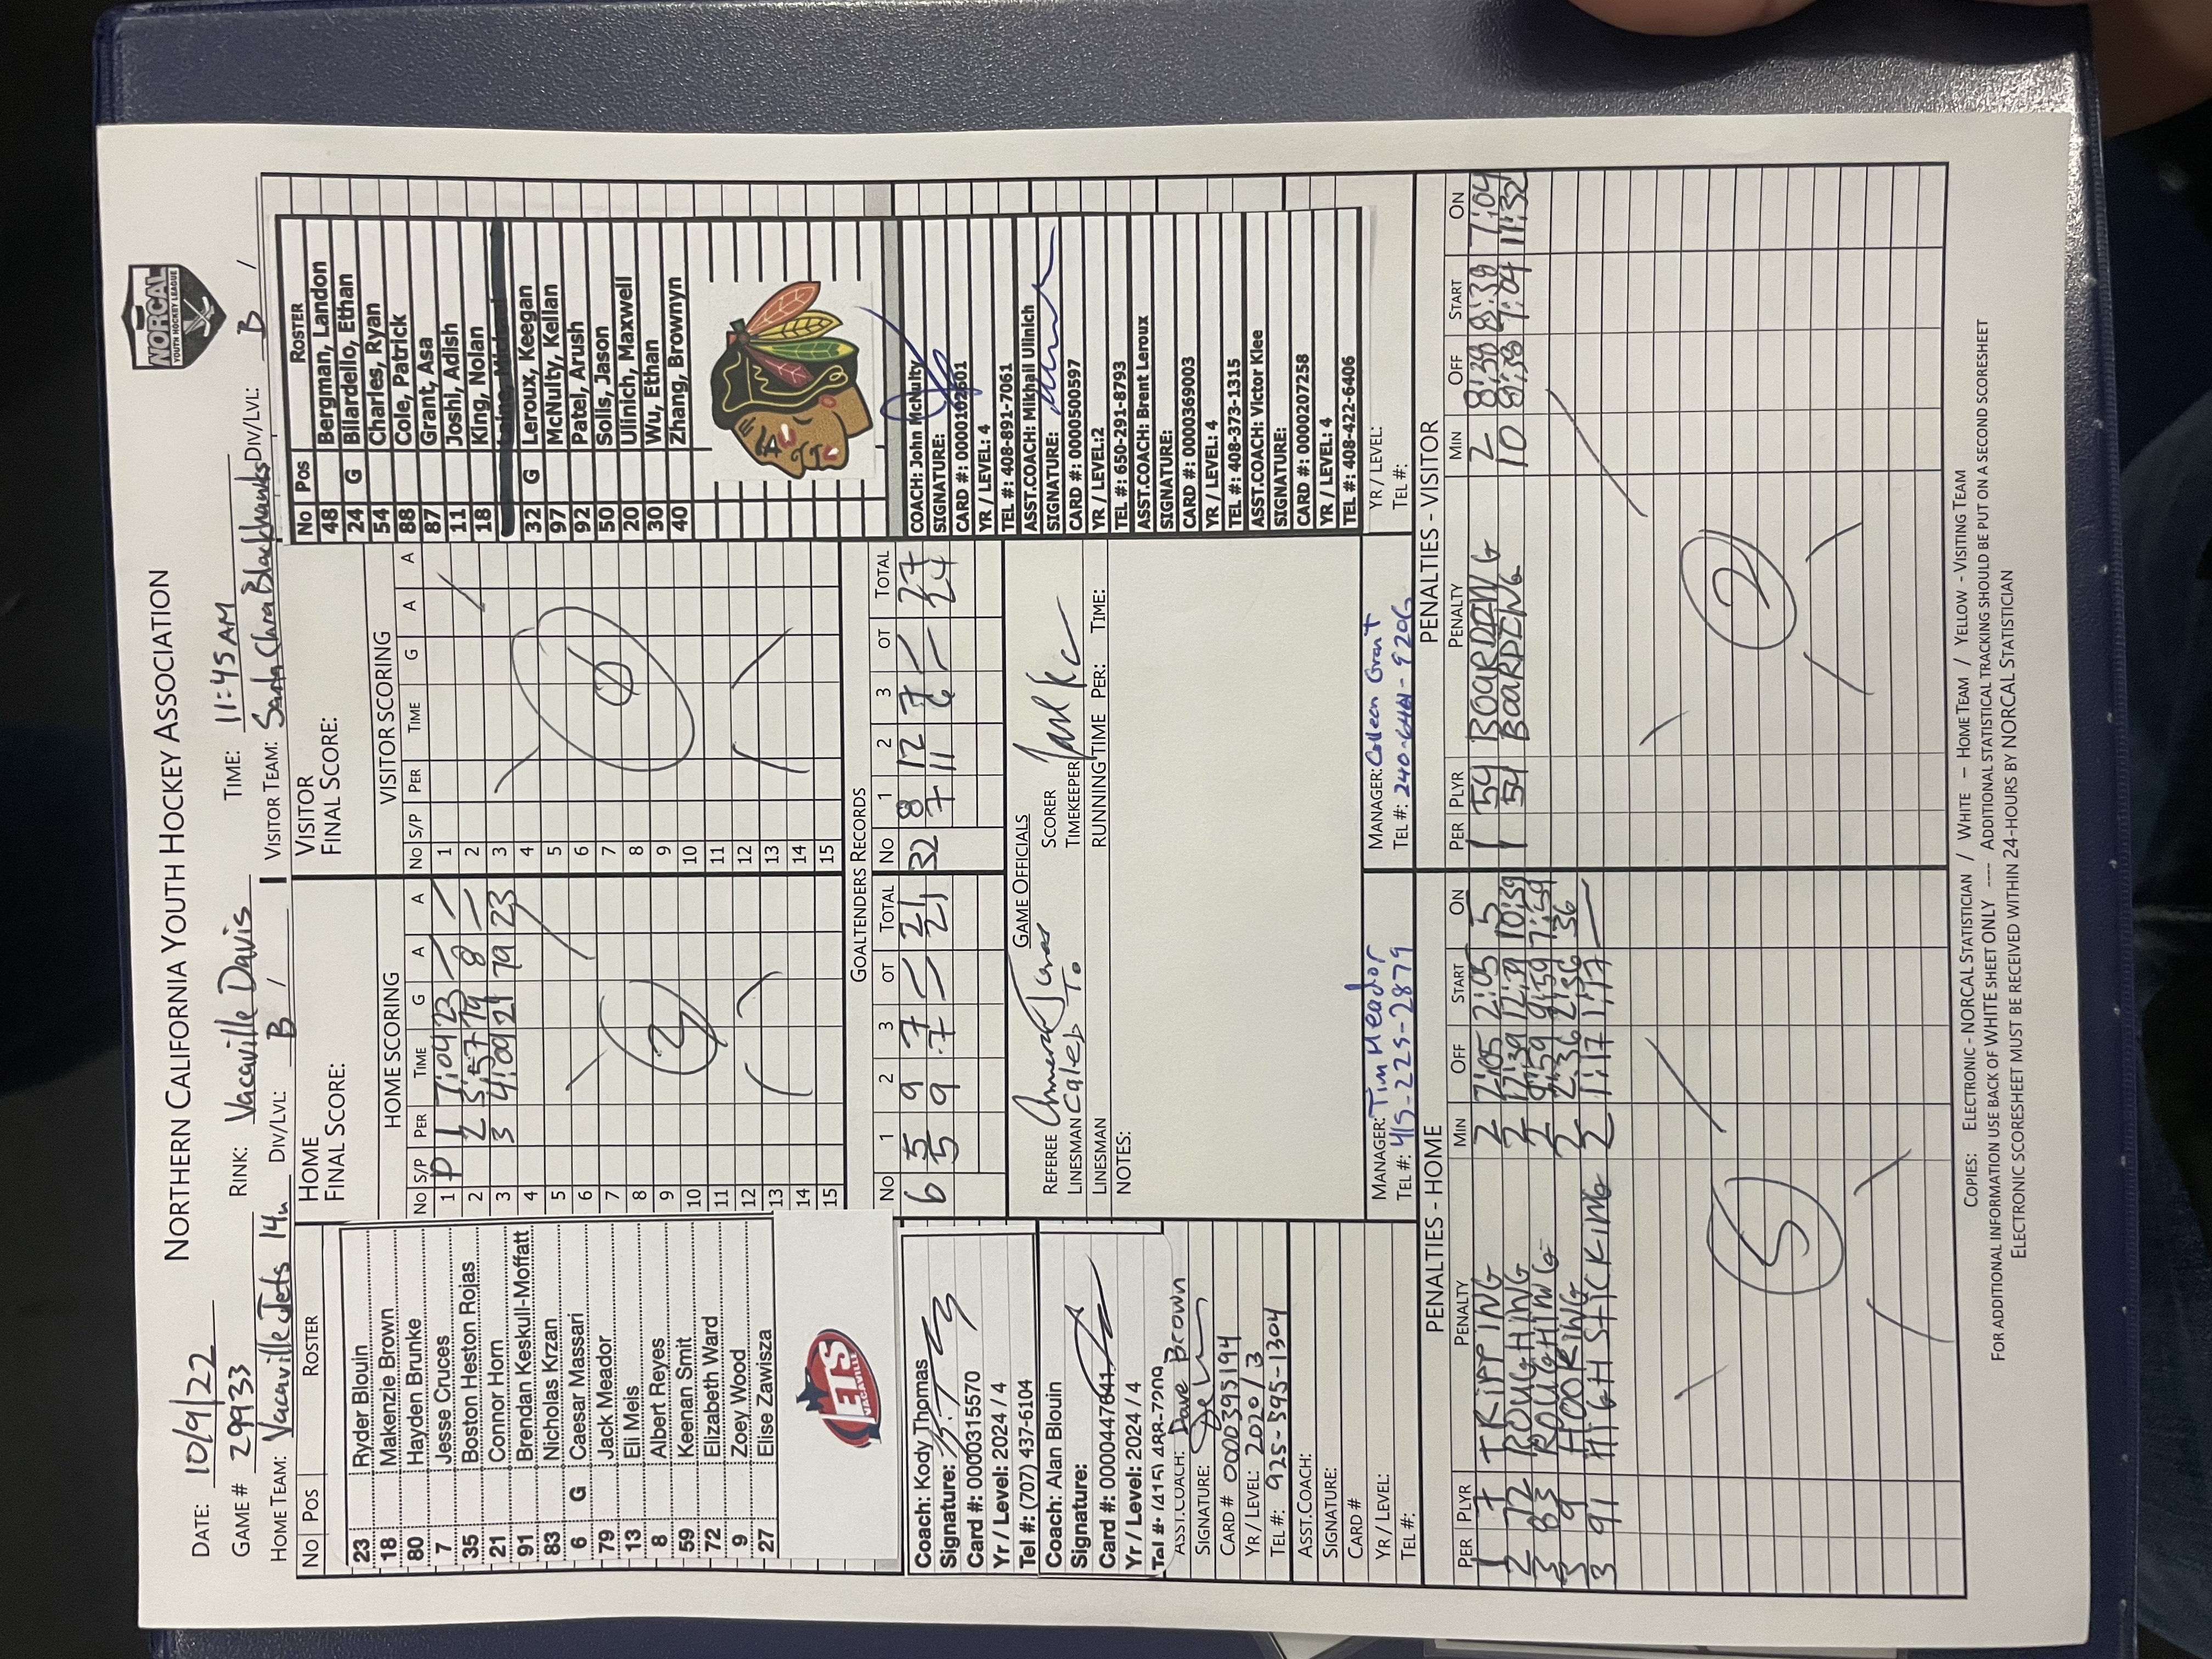 NORTHERN CALIFORNIA YOUTH HOCKEY ASSOCIATION
NORCAL
YOUTH HOCKEY LEAGUE
DATE: 10/9/22
GAME # 29933 RINK: Vacaville Davis TIME: 11:45 AM
HOME TEAM: Vacaville Jets 14u DIV/LVL: B / VISITOR TEAM: Santa Clara Blackhawks DIV/LVL: B /
No Pos ROSTER
23 Ryder Blouin
18 Makenzie Brown
80 Hayden Brunke
7 Jesse Cruces
35 Boston Heston Rojas
21 Connor Horn
91 Brendan Keskull-Moffatt
83 Nicholas Krzan
6 G Caesar Massari
79 Jack Meador
13 Eli Meis
8 Albert Reyes
59 Keenan Smit
72 Elizabeth Ward
9 Zoey Wood
27 Elise Zawisza
JETS
VACAVILLE
HOME
FINAL SCORE:
HOME SCORING
No S/P PER TIME G A A
1 P 1 7:04 23 / /
2 2 5:57 79 8 —
3 3 4:00 21 79 23
4
5
6
7
8
9
10
11
12
13
14
15
VISITOR
FINAL SCORE:
VISITOR SCORING
No S/P PER TIME G A A
1
2
3
4
5
6
7
8
9
10
11
12
13
14
15
No Pos ROSTER
48 Bergman, Landon
24 G Bilardello, Ethan
54 Charles, Ryan
88 Cole, Patrick
87 Grant, Asa
11 Joshi, Adish
18 King, Nolan
32 G Leroux, Keegan
97 McNulty, Kellan
92 Patel, Arush
50 Solis, Jason
20 Ulinich, Maxwell
30 Wu, Ethan
40 Zhang, Brownyn
GOALTENDERS RECORDS
No 1 2 3 OT TOTAL No 1 2 3 OT TOTAL
6 5 9 7 / 21 32 8 12 7 / 27
5 9 7 / 21 7 11 6 / 24
Coach: Kody Thomas
Signature:
Card #: 0000315570
Yr / Level: 2024 / 4
Tel #: (707) 437-6104
Coach: Alan Blouin
Signature:
Card #: 0000447641
Yr / Level: 2024 / 4
Tel #: (415) 488-7209
ASST.COACH: Dave Brown
SIGNATURE:
CARD # 0000395194
YR / LEVEL: 2020 / 3
TEL #: 925-595-1304
ASST.COACH:
SIGNATURE:
CARD #
YR / LEVEL:
TEL #:
GAME OFFICIALS
REFEREE SCORER
LINESMAN Caleb To TIMEKEEPER
LINESMAN RUNNING TIME PER: TIME:
NOTES:
COACH: John McNulty
SIGNATURE:
CARD #: 0000102601
YR / LEVEL: 4
TEL #: 408-891-7061
ASST.COACH: Mikhail Ulinich
SIGNATURE:
CARD #: 0000500597
YR / LEVEL:2
TEL #: 650-291-8793
ASST.COACH: Brent Leroux
SIGNATURE:
CARD #: 0000369003
YR / LEVEL: 4
TEL #: 408-373-1315
ASST.COACH: Victor Klee
SIGNATURE:
CARD #: 0000207258
YR / LEVEL: 4
TEL #: 408-422-6406
YR / LEVEL:
TEL #:
MANAGER: Tim Meador
TEL #: 415-225-2879
MANAGER: Colleen Grant
TEL #: 240-641-9206
PENALTIES - HOME
PER PLYR PENALTY MIN OFF START ON
1 7 TRIPPING 2 2:05 2:05 5
2 72 ROUGHING 2 12:39 12:39 10:39
3 83 ROUGHING 2 9:59 9:59 7:59
3 9 HOOKING 2 2:36 2:36 36
3 91 HIGH STICKING 2 1:17 1:17 —
5
PENALTIES - VISITOR
PER PLYR PENALTY MIN OFF START ON
1 54 BOARDING 2 8:39 8:39 7:04
1 54 BOARDING 10 8:39 7:04 11:32
2
COPIES: ELECTRONIC - NORCAL STATISTICIAN / WHITE – HOME TEAM / YELLOW - VISITING TEAM
FOR ADDITIONAL INFORMATION USE BACK OF WHITE SHEET ONLY ---- ADDITIONAL STATISTICAL TRACKING SHOULD BE PUT ON A SECOND SCORESHEET
ELECTRONIC SCORESHEET MUST BE RECEIVED WITHIN 24-HOURS BY NORCAL STATISTICIAN